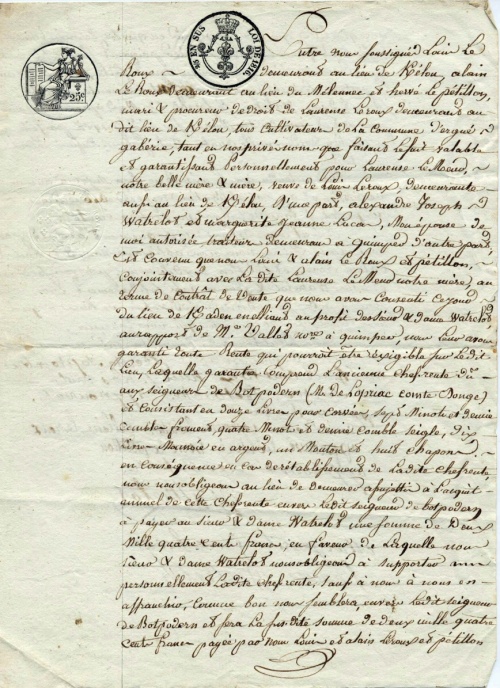 EN SUS LOI DE 1816
25c
Entre nous soussignés Louis Le
Roux demeurant au lieu de Kélou, alain
Le Roux demeurant au lieu du Mélennec et hervé le pétillon,
mari & procureur de droit de Laurence Leroux demeurants au
dit lieu de Kélou, tous Cultivateurs de La Commune d'ergué
gabéric, tant en nos privés noms que faisant le fait valable
et garantissant personnellement pour Laurence Le Meud
notre belle mère & mère, veuve de Louis Leroux, demeurante
aussi au lieu de Kélou, D'une part, alexandre Joseph
Watrelot et marguerite Jeanne Lucas, Mon épouse de
moi autorisée traiteur demeurant a quimper d'autre part,
Est Convenu que nous Louis & alain le Roux et pétillon,
Conjointement avec La dite Laurence Le Meud notre mère, au
terme de Contrat de Vente que nous avons Consenti ce jour
du lieu de au profit des Sieur & dame Watrelot
au rapport de Me Vallet nore à quimper, nous leur avons
garanti toute Rente qui pourrait être exigible sur le dit
Lieu, Laquelle garantie comprend L'ancienne Chefrente dû
aux seigneurs de Botpodern (Mr de Lopriac comte Donge)
et Consistant en douze livres pour Corvées, sept Minots et demie
comble froment, quatre Minots et demie comble seigle, dix
en argent, un Mouton et huit Chapons
en Conséquence en cas de rétablissement de La dite Chefrente,
nous nous obligeons au lieu de demeurer assujettis à l'acquit
annuel de cette Chefrente envers le dit seigneur de botpodern
à payer au Sieur & dame Watrelot une somme de Deux
Mille quatre Cent francs en faveur de Laquelle nous
Sieur & dame Watrelot nous obligeons à Supporter
personnellement La dite Chefrente, sauf à nous à nous en
affranchir, Comme bon nous semblera envers le dit seigneur
de Botpodern et sera La sus-dite somme de deux mille quatre
Cent francs payée par nous Louis et alain Leroux et pétillon